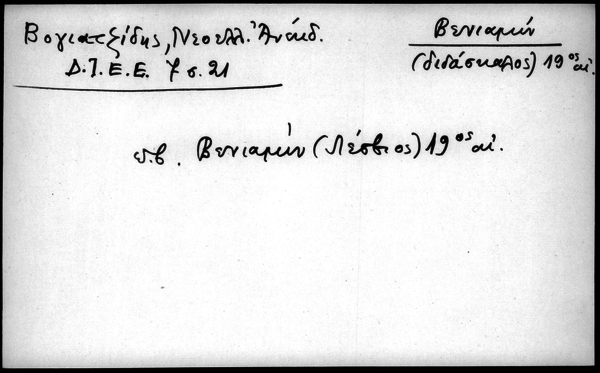 Βογιατζίδης, Νεοελλ. Ἀνάλ.
Δ.Ι.Ε.Ε. 7 σ. 21
Βενιαμίν
(διδάσκαλος) 19ος αἰ.
β. Βενιαμίν (Λέσβιος) 19ος αἰ.